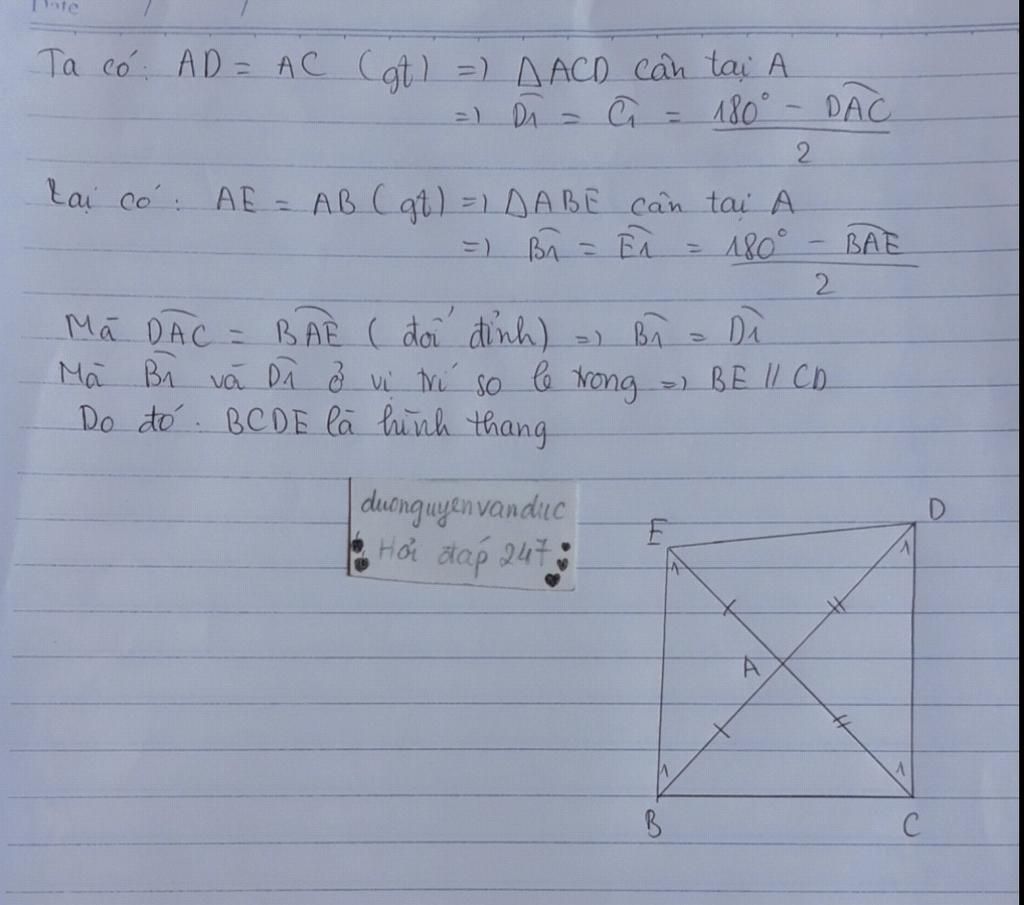 Date / /
Ta có: AD = AC (gt) => ΔACD cân tại A
=> D̂1 = Ĉ1 = (180° - DÂC)/2
Lại có: AE = AB (gt) => ΔABE cân tại A
=> B̂1 = Ê1 = (180° - BÂE)/2
Mà DÂC = BÂE (đối đỉnh) => B̂1 = D̂1
Mà B̂1 và D̂1 ở vị trí so le trong => BE // CD
Do đó: BCDE là hình thang
duonguyenvanduc
Hỏi đáp 247
E D
1 1
A
1 1
B C